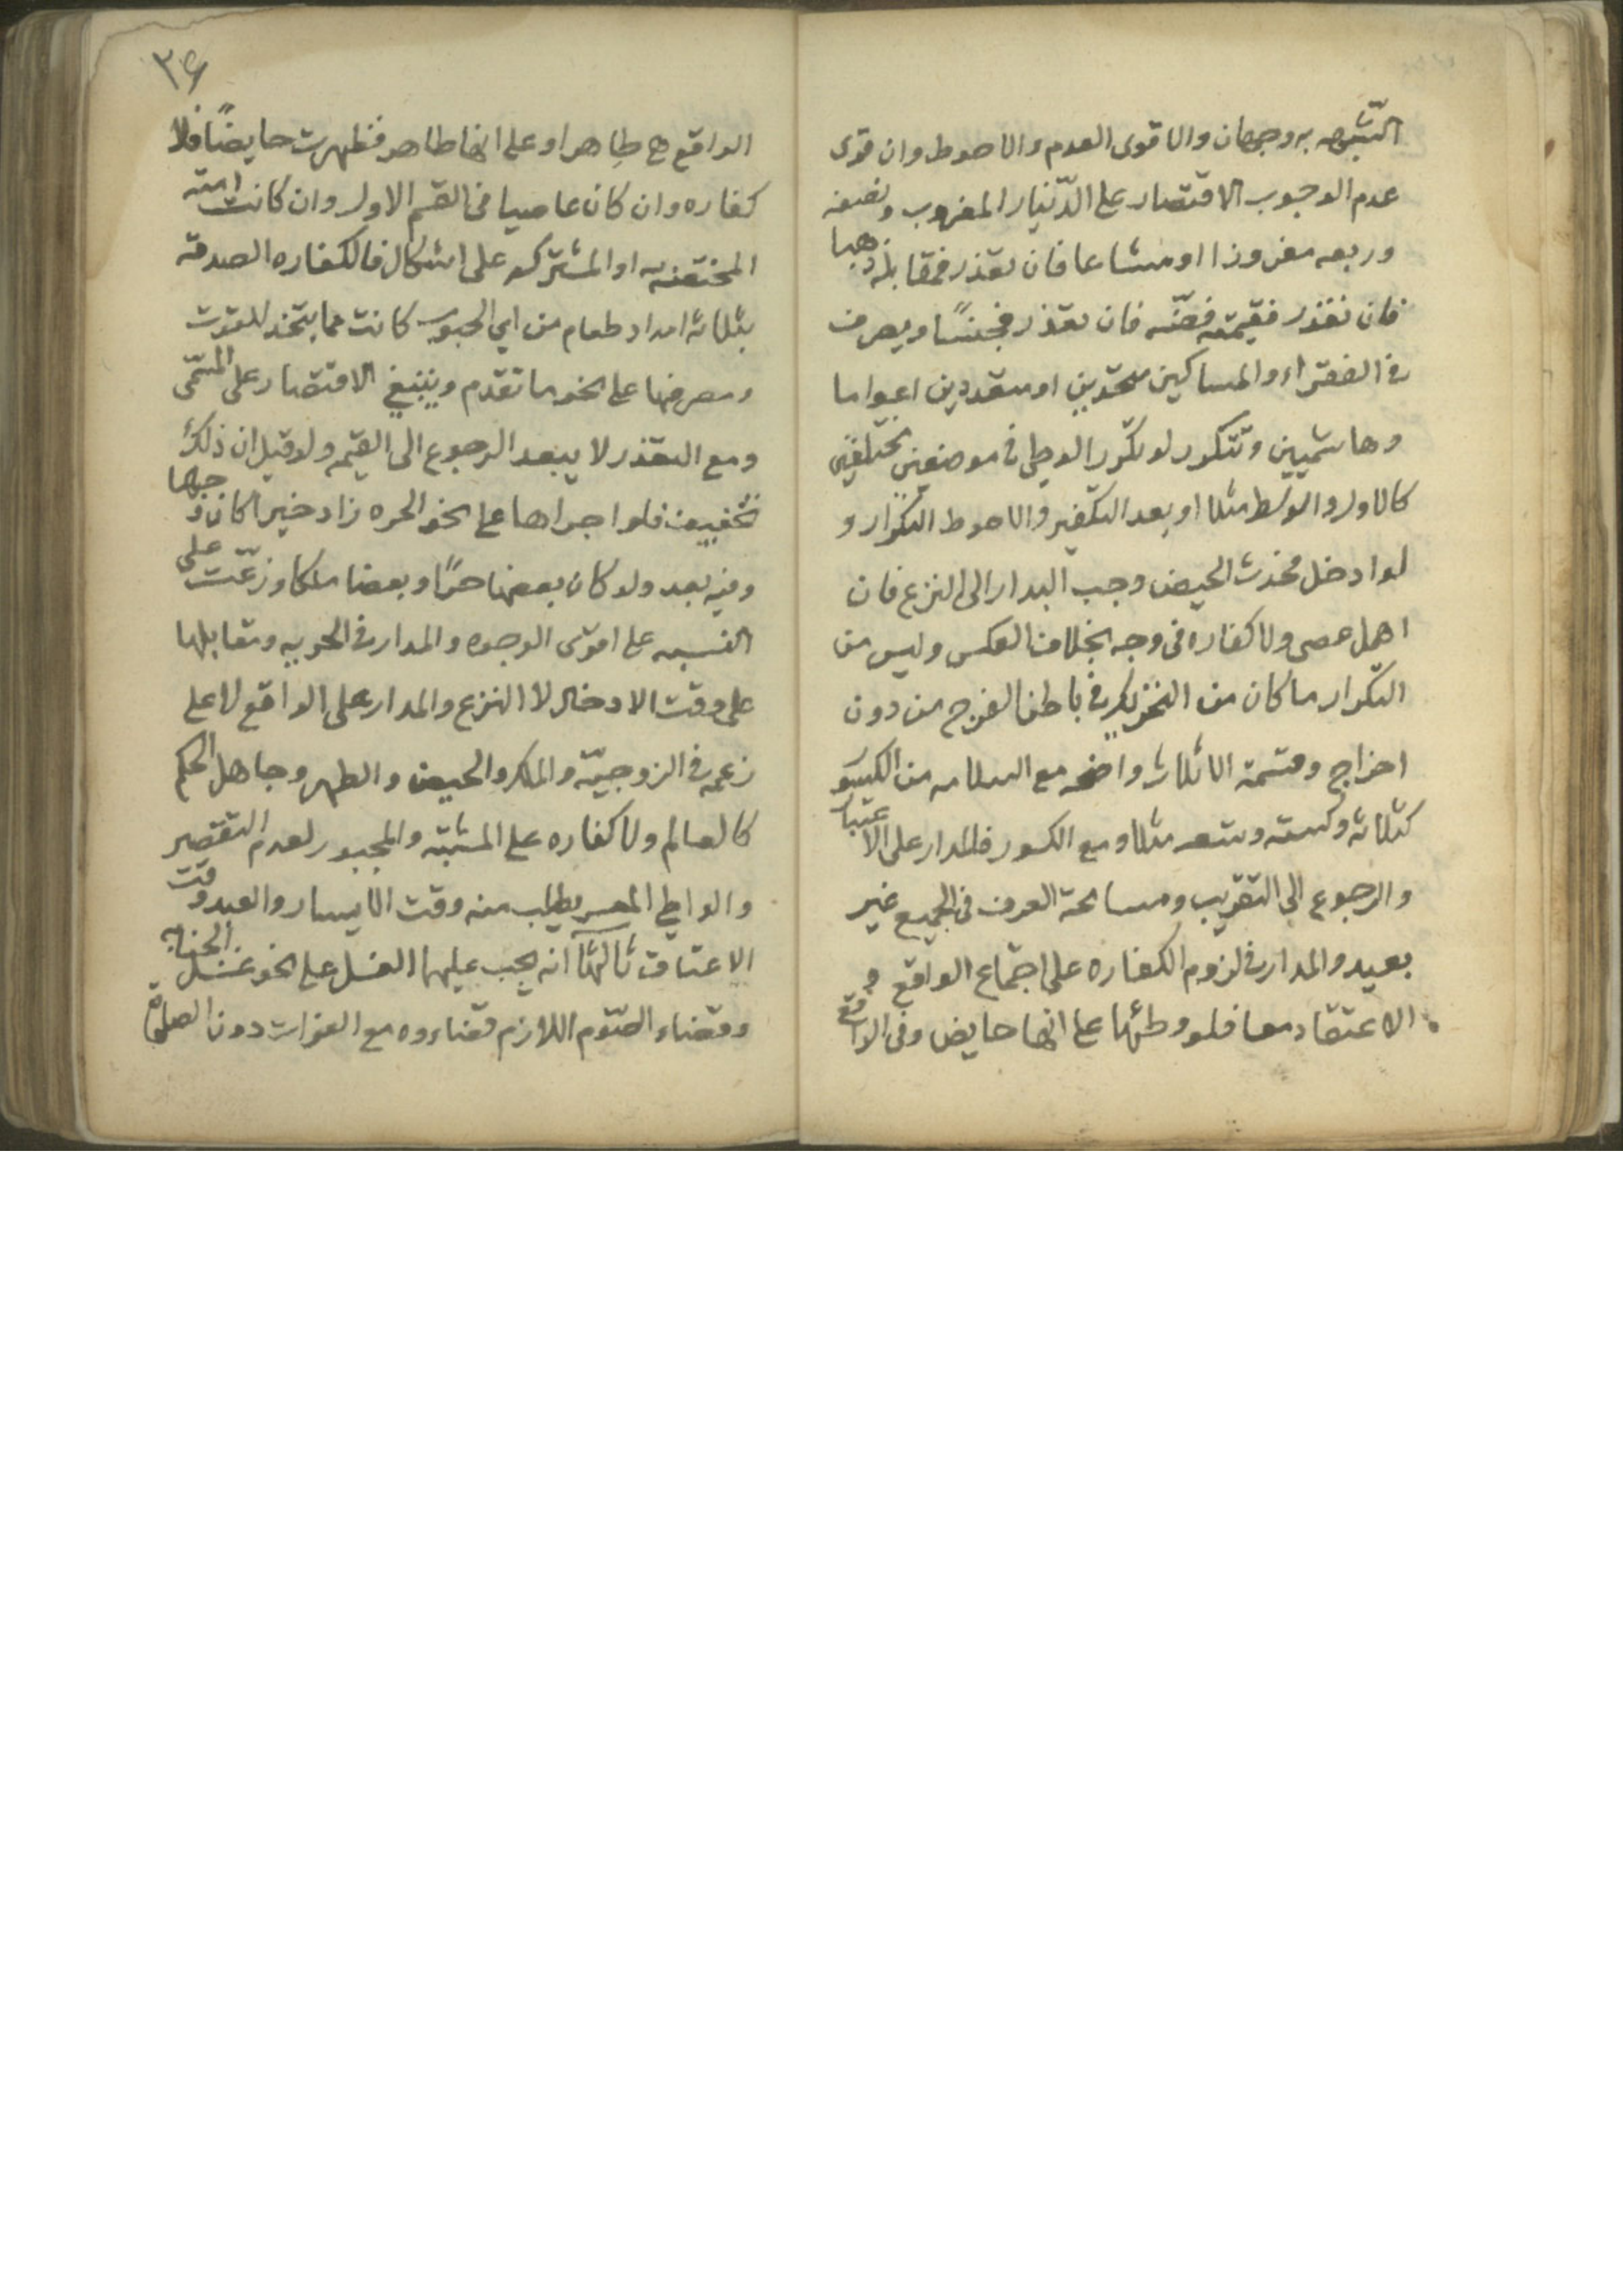 الشبهه به وجهان والاقوى العدم والاحوط وان قوى
عدم الوجوب الاقتصار على الدّينار المضروب ونصفه
وربعه مفروزا او مشاعا فان تعذر فمقابله ذهبا
فان تعذر فقيمته فضّه فان تعذر فجنسًا ويصرف
في الفقراء والمساكين متحدين او متعددين اعواما
وهاشميين وتتكرر لو تكرّر الوطي في موضعين مختلفين
كالاول والوسط مثلا او بعد التكفير والاحوط التكرار و
لو ادخل فحدث الحيض وجب البدار الى النزع فان
اهمل عصى ولا كفاره في وجه بخلاف العكس وليس من
التكرار ما كان من التحريك في باطن الفرج من دون
اخراج وقسمة الاثلاث واضحه مع السلامه من الكسر
كثلاثه وسته وتسعه مثلا ومع الكسور فالمدار على الاعتبار
والرجوع الى التقريب ومسامحة العرف في الجميع غير
بعيد والمدار في لزوم الكفاره على اجتماع الواقع و
الاعتقاد معا فلو وطئها على انها حايض وفى الواقع
٢٦
الواقع هي طاهر او على انها طاهر فظهرت حايضًا فلا
كفاره وان كان عاصيا في القسم الاول وان كانت امته
المختصه به او المشتركه على اشكال فالكفاره الصدقه
بثلاثه امداد طعام من اي الحبوب كانت مما يتخذ للقوت
ومصرفها على نحو ما تقدم وينبغي الاقتصار على المسمّى
ومع التعذر لا يبعد الرجوع الى القيمه ولو قيل ان ذلك
تخفيف فلو اجراها على نحو الحره زاد خيرا كان وجها
وفيه بعد ولو كان بعضها حرًا وبعضا ملكا وزعت على
النسبه على اقوى الوجوه والمدار في الحريه ومقابلها
على وقت الادخال لا النزع والمدار على الواقع لا على
زعمه في الزوجيّه والملك والحيض والطهر وجاهل الحكم
كالعالم ولا كفاره على المشتبه والمجبور لعدم التقصير
والواطي المعسر يطلب منه وقت الايسار والعبد وقت
الاعتاق ثالثها انه يجب عليها الغسل على نحو غسل الجنابه
وقضاء الصّوم اللازم قضاءوه مع الفوات دون الصلوة